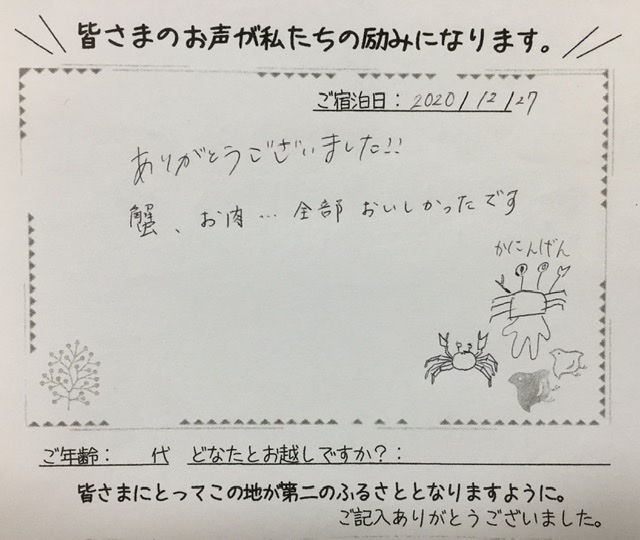 皆さまのお声が私たちの励みになります。
ご宿泊日：2020/12/27
ありがとうございました!!
蟹、お肉…全部おいしかったです
かにんげん
ご年齢：　代　どなたとお越しですか？：
皆さまにとってこの地が第二のふるさととなりますように。
ご記入ありがとうございました。